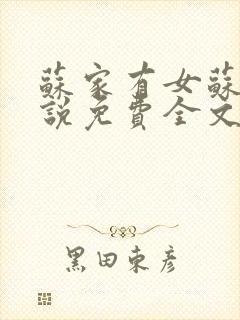 蘇家有女蘇
說免費全文
黑田東彥